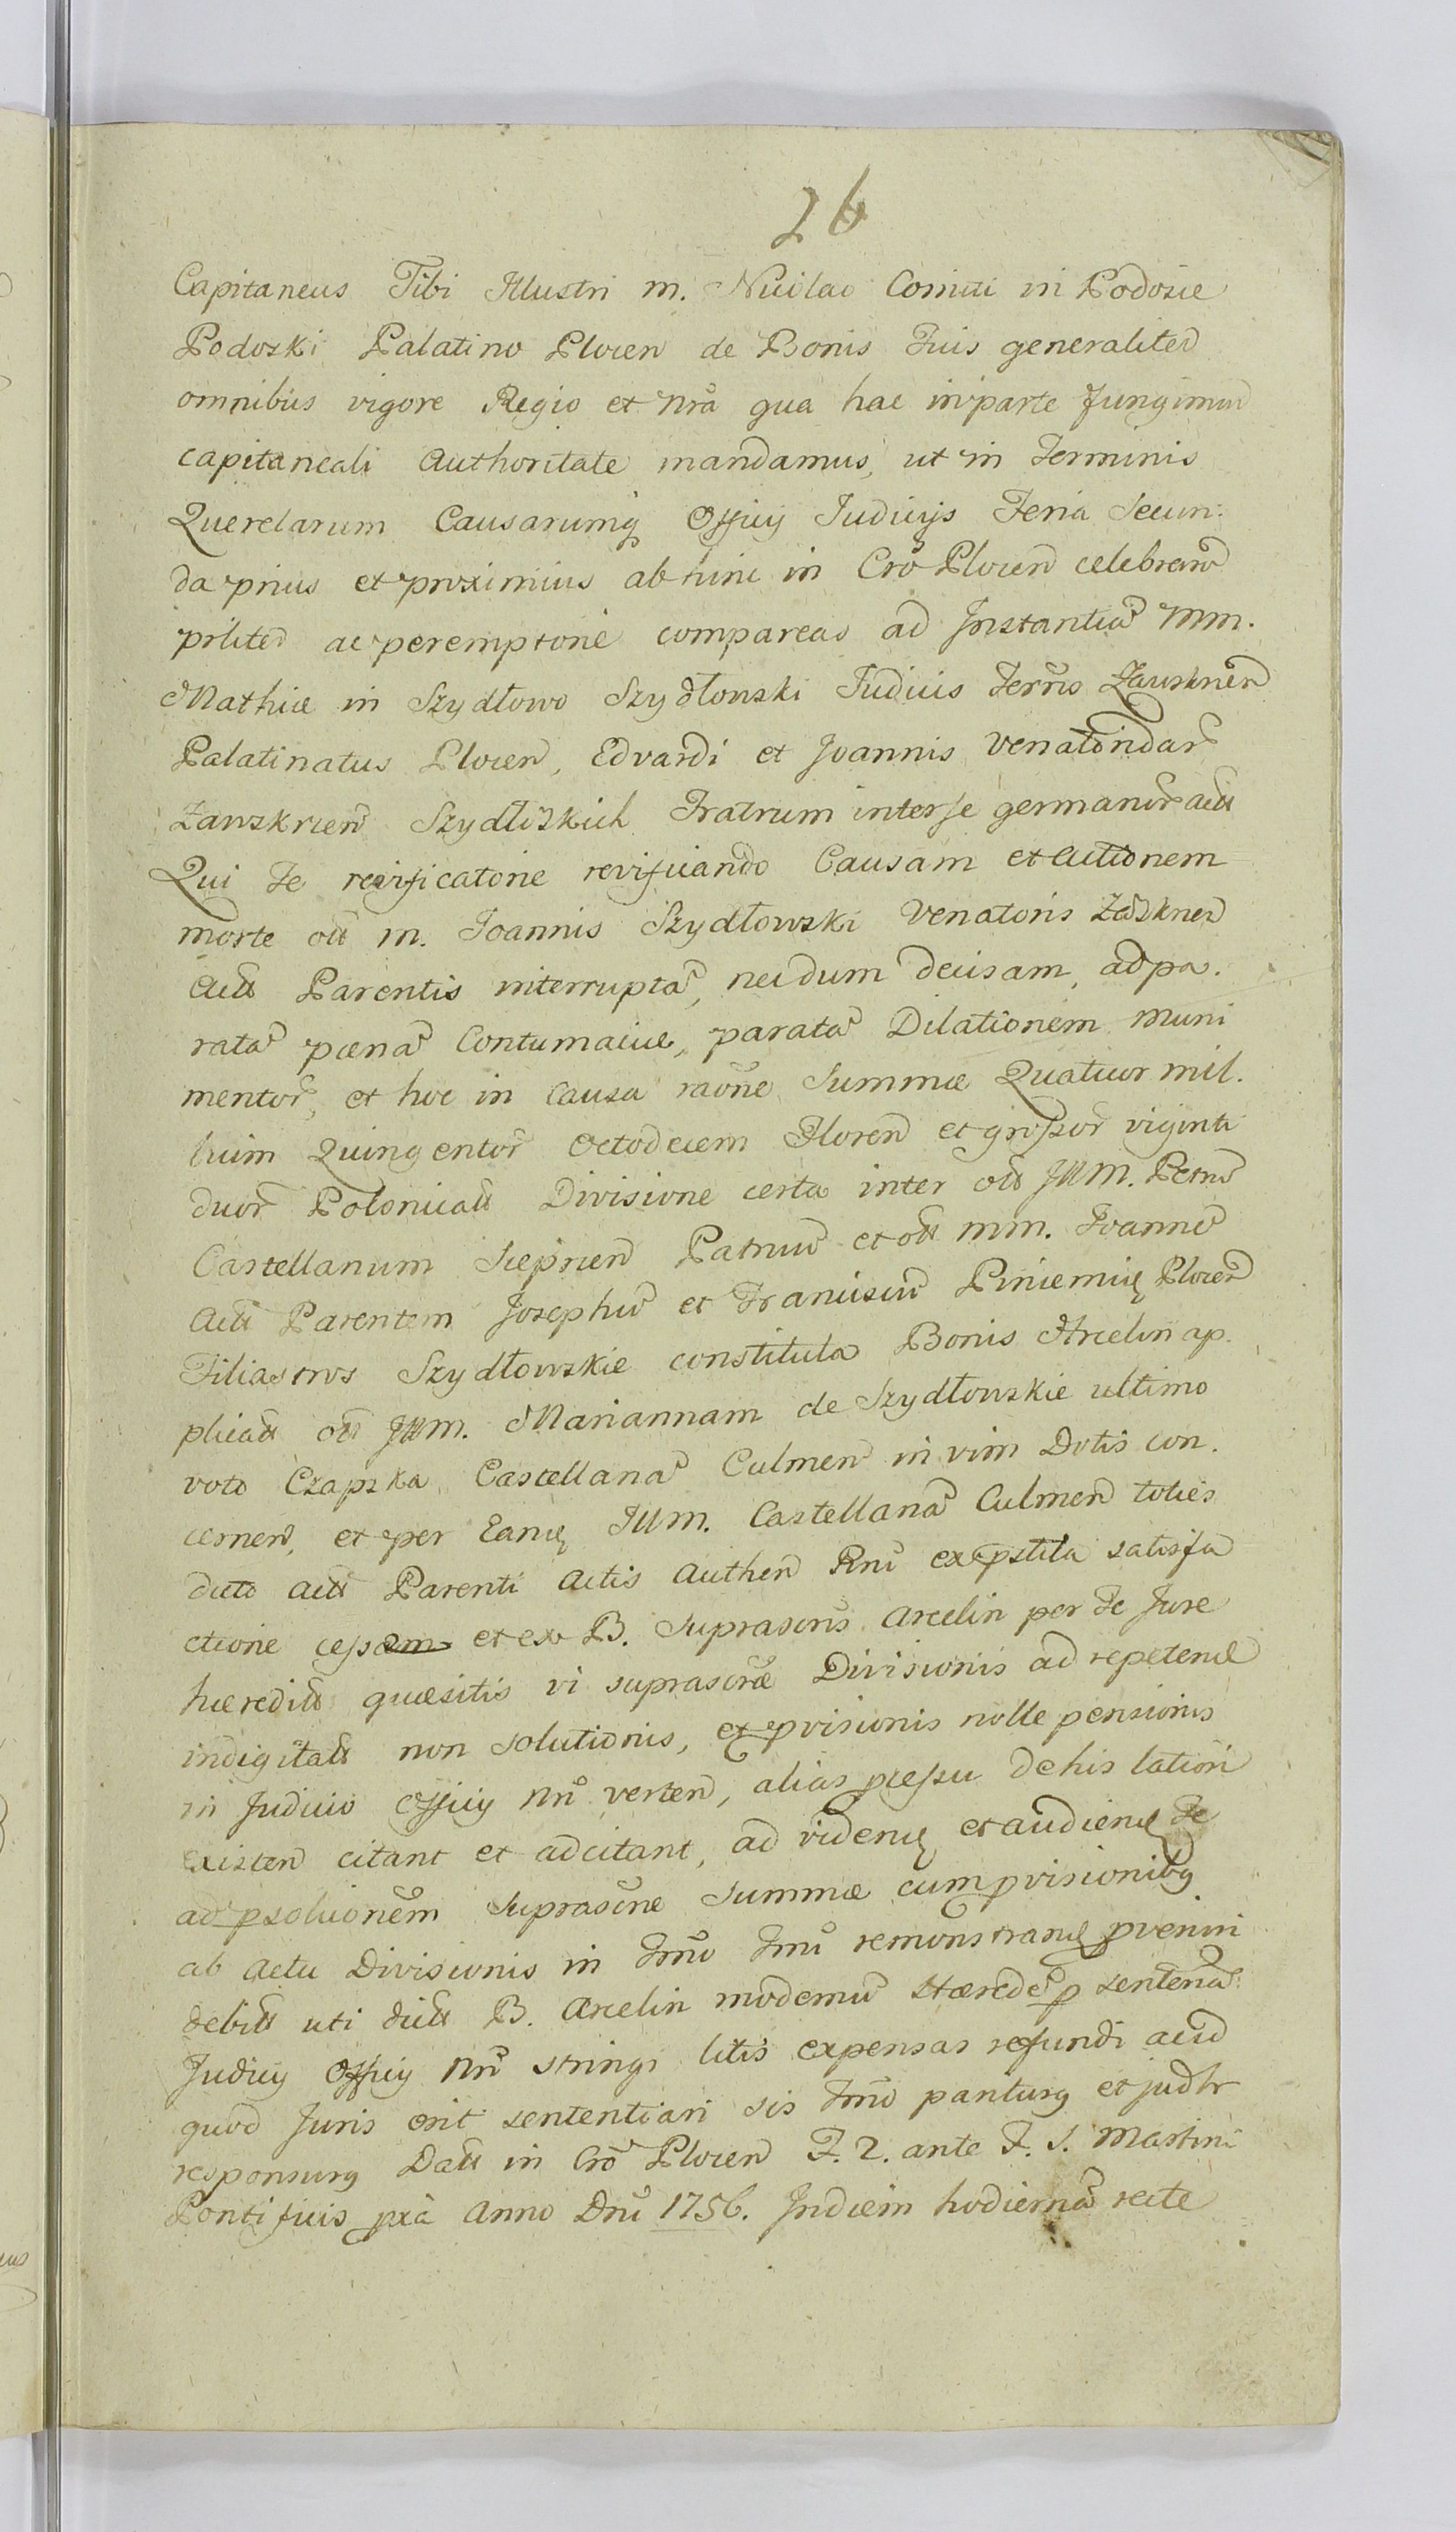 26
Capitaneus Tibi Illustri m. Nicolao Comiti in Podosie
Podoski Palatino Plocen de Bonis Tuis generaliter
omnibus vigore Regio et nrã qua hac in parte fungimur
capitaneali Authoritate mandamus, ut in Terminis
Querelarum Causarumq Officÿ Judicÿs Feria Secun:
da prius et proximius ab hinc in Crõ Plocen celebran
pnliter ac peremptorie compareas ad Instantia MM.
Mathiæ in Szydłowo Szydłowski Judicis Terris Zawskrnen
Palatinatus Plocen, Edvardi et Joannis Venatoridar
Zawskrien Szydłoskich Fratrum inter se germanor actt
Qui Te reificatorie revificando Causam et Actionem
morte ott m. Joannis Szydłowski Venatoris Zaskrnen
Actt Parentis interrupta, necdum decisam, ad pa.
rata pœna Contumaciæ, parata Dilationem Muni
mentor, et hoc in Causa raõne Summæ Quatuor mil.
lium Quingentor Octodecem Floren et grossor viginti
duor Polonicatt Divisione certa inter ott JllM. Petru
Castellanum Sieprcen Patruu et ott MM. Joanne
Actt Parentem Josephu et Franciscu Pincernię Plocen
Filiastros Szydłowskie constituta Bonis Arcelin ap.
plicatt ott Jllm. Mariannam de Szydłowskie ultimo
voto Czapska Castellana Culmen in vim Dotis con.
cernen, et per Eanę Jllm. Castellana Culmen toties
dicto Actt Parenti Actis Authen Rni expstita satisfa
ctione cessam et ex B. Suprascris Arcelin per Te Jure
hæreditt quæsitis vi suprascræ Divisionis ad repetend
indigitatt non solutionis, et pvisionis nolle pensionis
in Judicio Officÿ Nri verten, alias pcessu de his latiori
existen citant et adcitant, ad videndę et audiendę Te
ad psolucionem Suprascræ Summæ cum pvisionibq
ab Actu Divisionis in Tmũo Tmi remonstrandę pvenim
debitt uti dictt B. Arcelin modernu Hærede p sentena:
Judicÿ Officÿ Nri stringi litis expensas refundi acid
quod Juris erit sententiari sis Tmõ pariturq et judtr
responsurq Datt in Crõ Plocen F. 2. ante F. S. Martini
Pontificis pxa Anno Dni 1756. Indiem hodierna recte